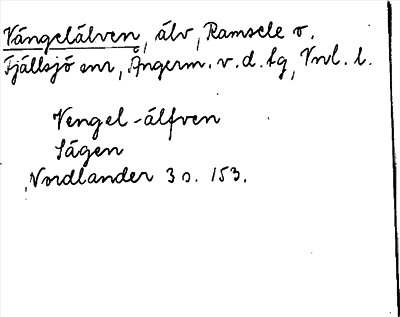 Vängelälven, älv, Ramsele o.
Fjällsjö snr, Ångerm. v. d. tg, Vnl. l.
Vengel-älfven
Sågen
Nordlander 3 s. 153.